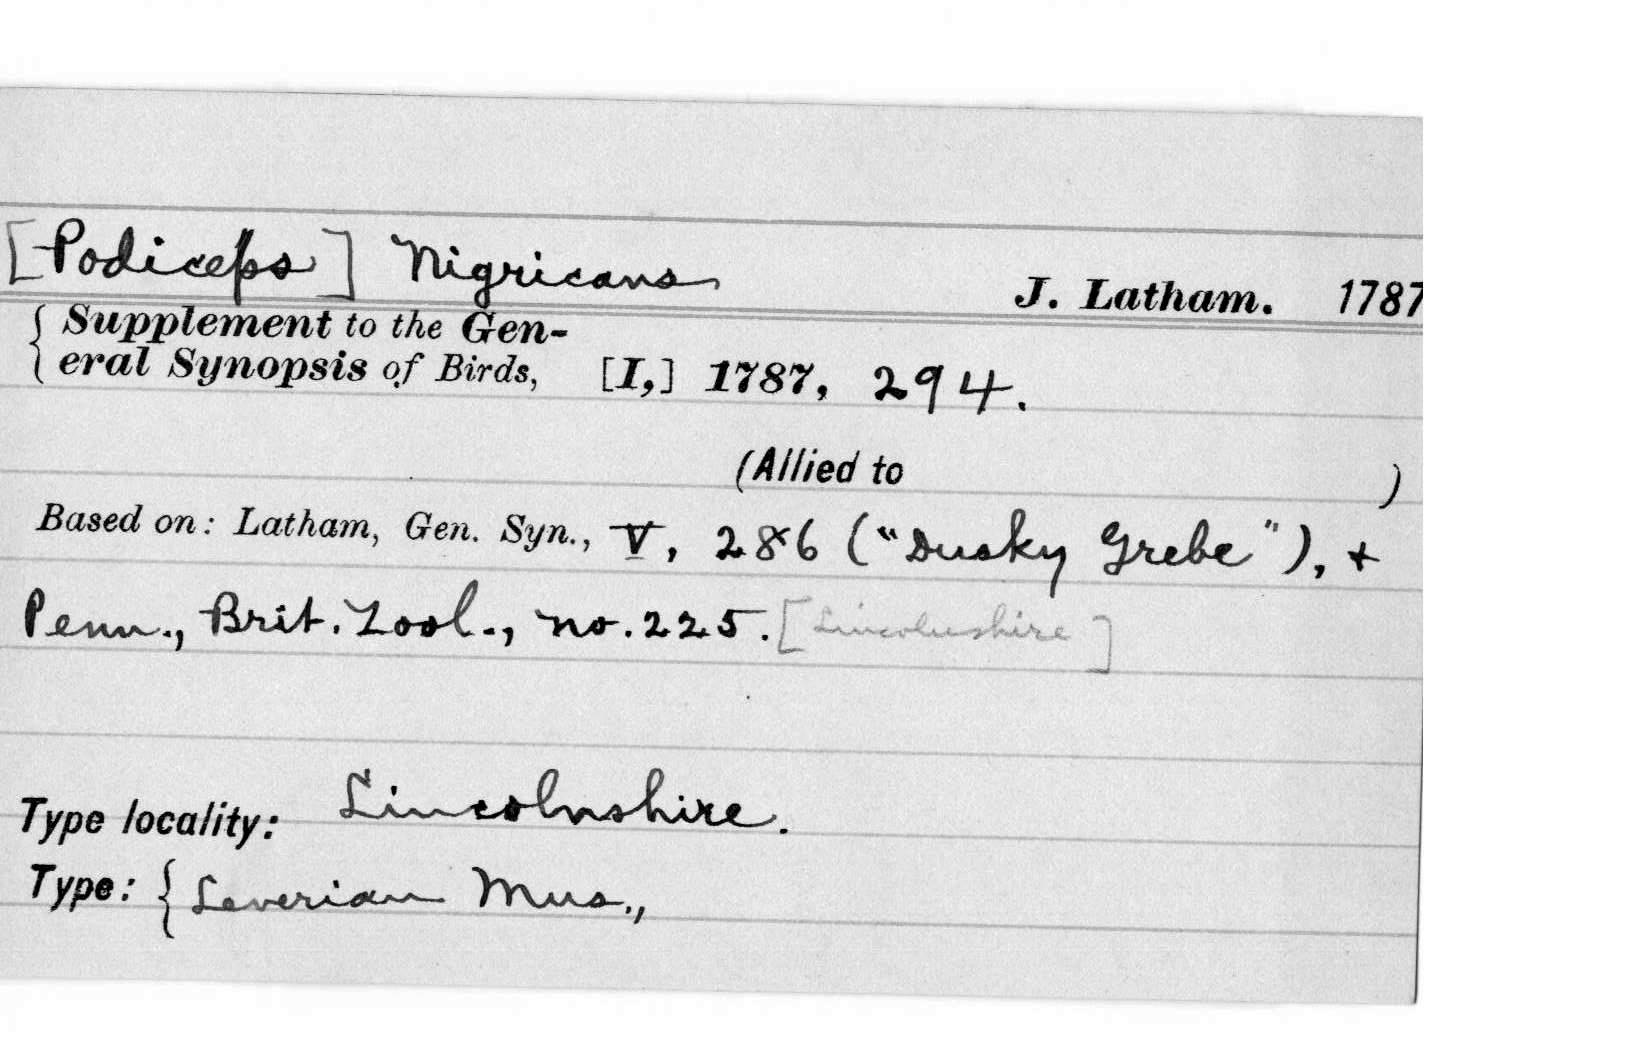 [Podiceps] Nigricans J. Latham. 1787
{ Supplement to the Gen-
eral Synopsis of Birds, [I,] 1787, 294.
(Allied to )
Based on: Latham, Gen. Syn., V, 286 ("Dusky Grebe"), +
Penn., Brit. Zool., no. 225. [Lincolnshire]
Type locality: Lincolnshire.
Type: { Leverian Mus.,